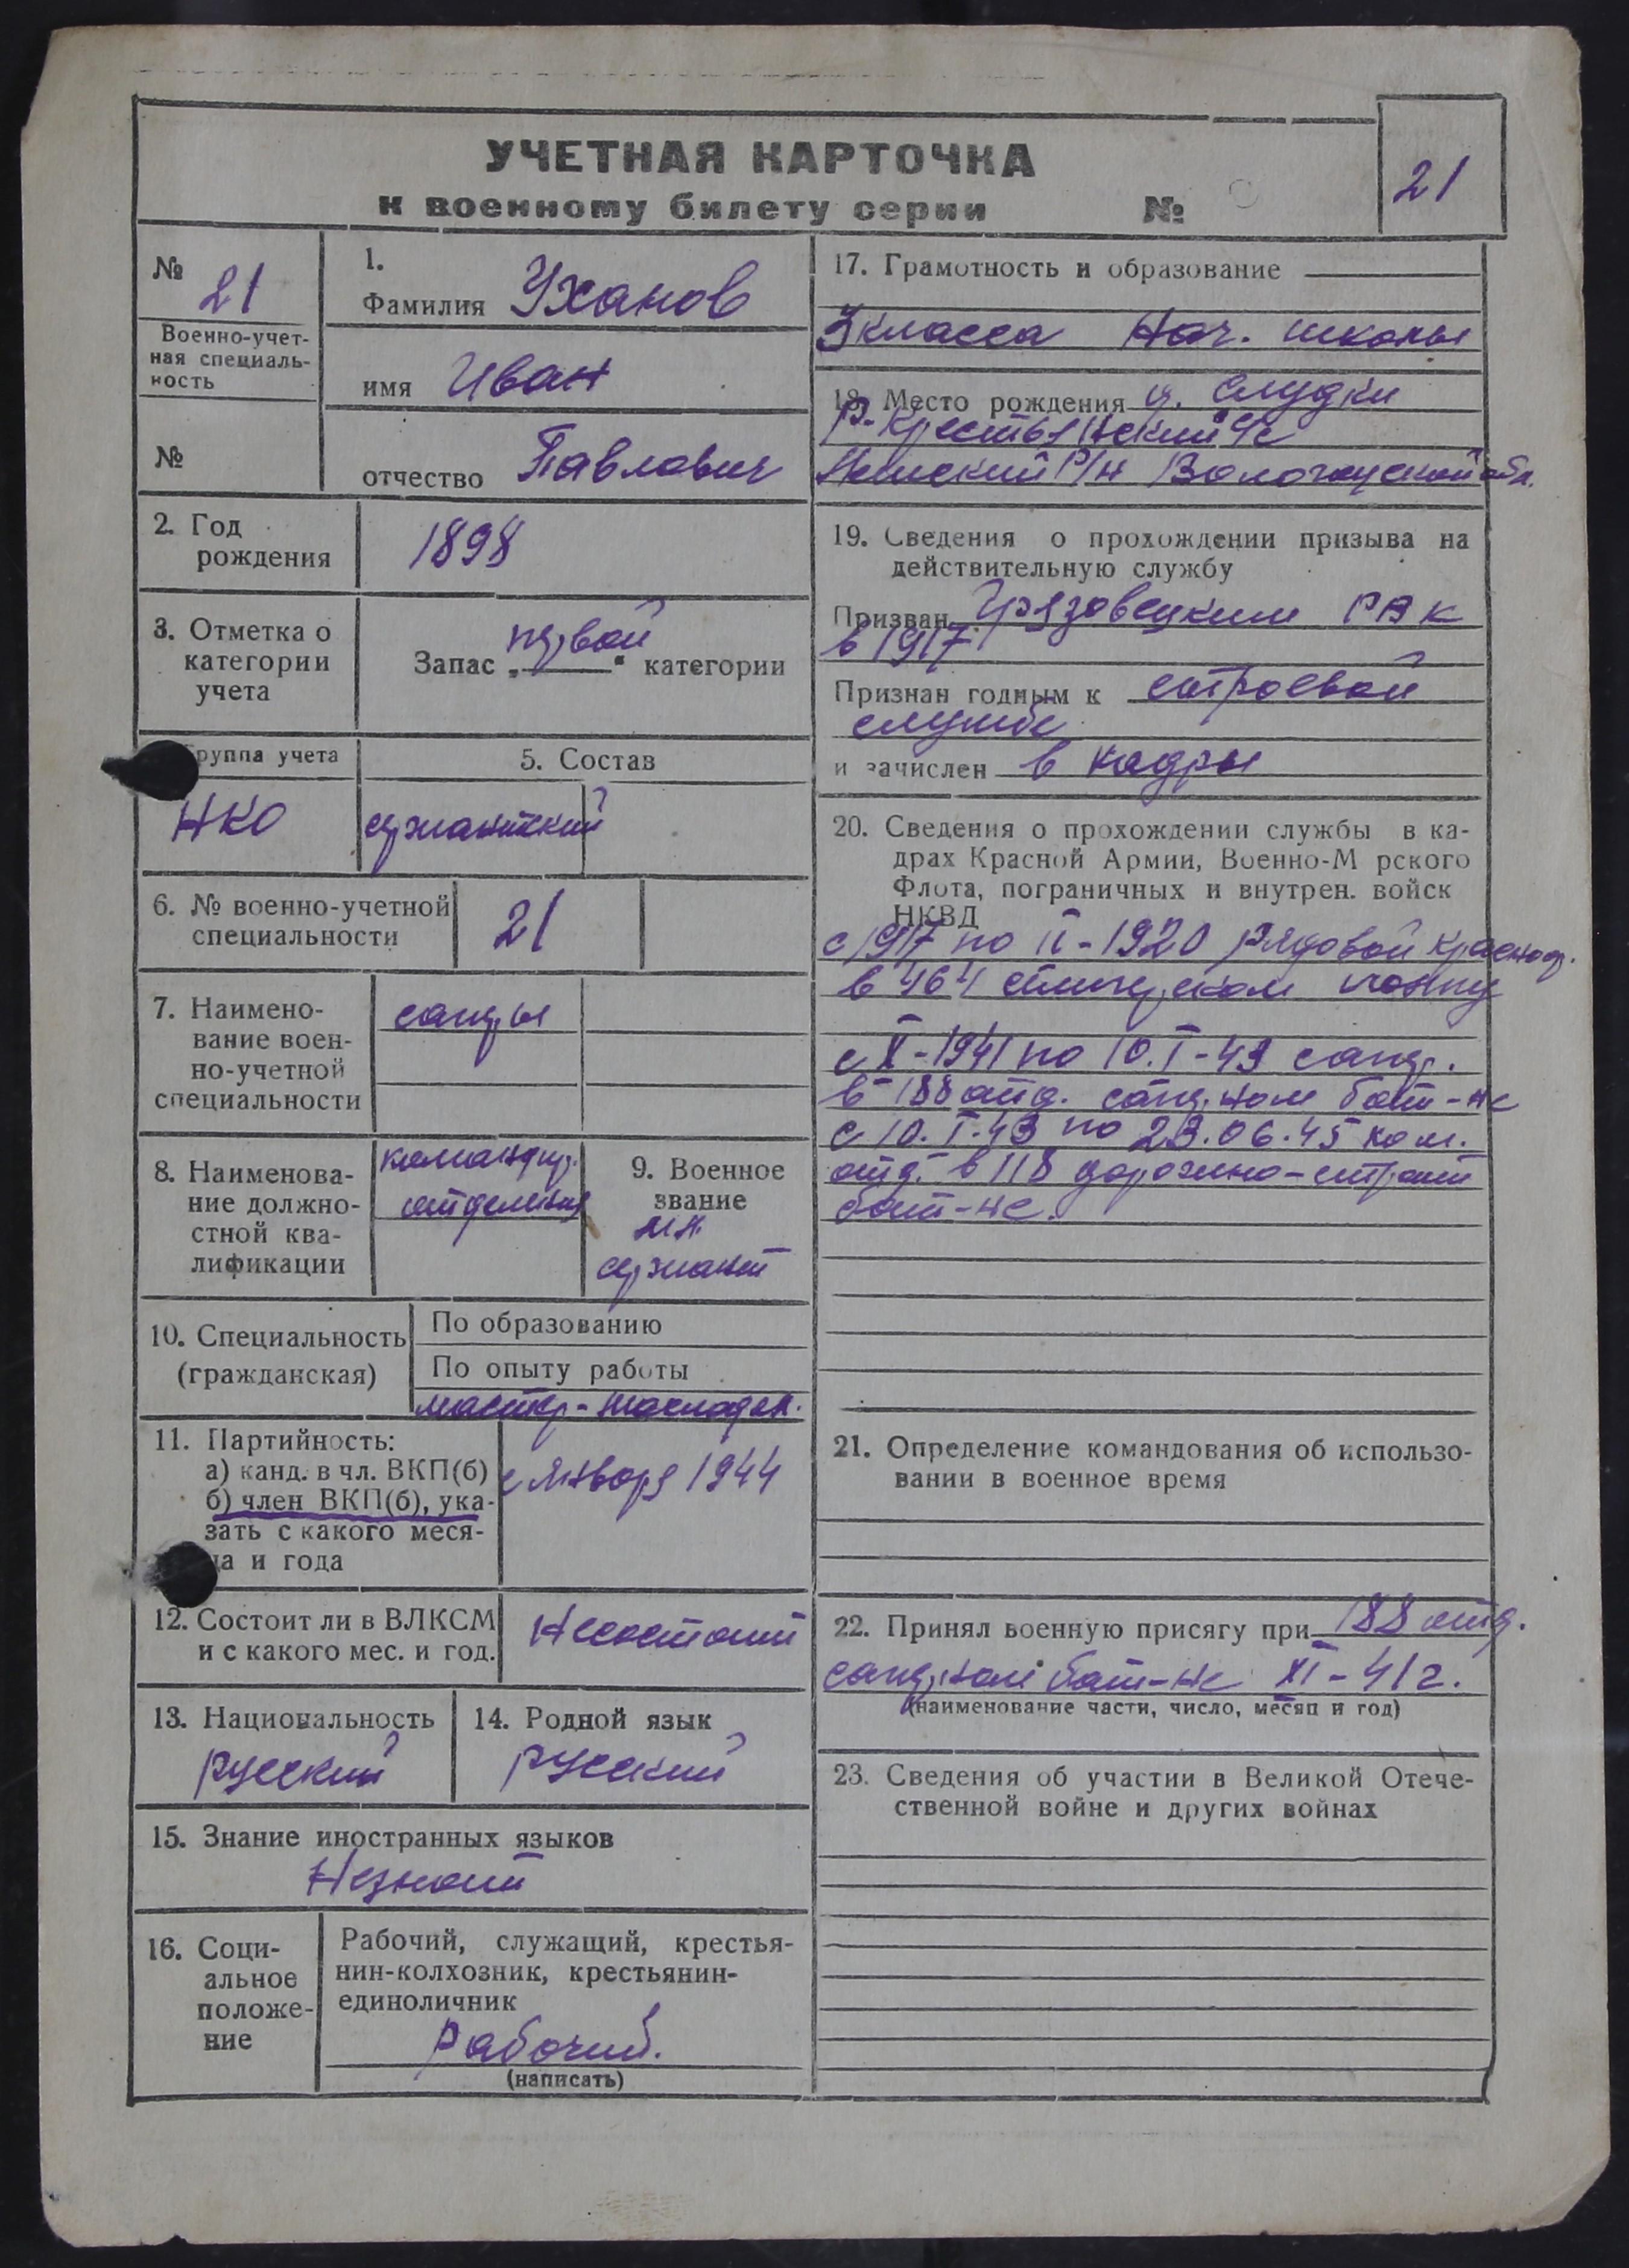 УЧЕТНАЯ КАРТОЧКА
к военному билету серии №
21
№ 21
Военно-учет-
ная специаль-
ность
№
1.
Фамилия Уханов
имя Иван
отчество Павлович
2. Год
рождения
1898
3. Отметка о
категории
учета
Запас „первой“ категории
руппа учета
НКО
5. Состав
сержантский
6. № военно-учетной
специальности
21
7. Наимено-
вание воен-
но-учетной
специальности
саперы
8. Наименова-
ние должно-
стной ква-
лификации
командир.
отделения
9. Военное
звание
мл.
сержант
10. Специальность
(гражданская)
По образованию
По опыту работы
мастер-
11. Партийность:
а) канд. в чл. ВКП(б)
б) член ВКП(б), ука-
зать с какого меся-
ца и года
с января 1944
12. Состоит ли в ВЛКСМ
и с какого мес. и год.
Несостоит
13. Национальность
русский
14. Родной язык
русский
15. Знание иностранных языков
Незнает
16. Соци-
альное
положе-
ние
Рабочий, служащий, крестья-
нин-колхозник, крестьянин-
единоличник
рабочий.
(написать)
17. Грамотность и образование
3 класса Нач. школы
18. Место рождения д. Слудки
р-н Вологодской обл.
19. Сведения о прохождении призыва на
действительную службу
Призван Грязовецким РВК
в 1917
Признан годным к строевой
службе
и зачислен в кадры
20. Сведения о прохождении службы в ка-
драх Красной Армии, Военно-М рского
Флота, пограничных и внутрен. войск
НКВД
с 1917 по II-1920 рядовой
в 464 полку
с X-1941 по 10.I-43 сапер.
в 188 отд. саперном бат-не
с 10.I.43 по 23.06.45 ком.
отд. в 118 дорожно-строит
бат-не.
21. Определение командования об использо-
вании в военное время
22. Принял военную присягу при 188 отд.
саперном бат-не XI-41г.
(наименование части, число, месяц и год)
23. Сведения об участии в Великой Отече-
ственной войне и других войнах